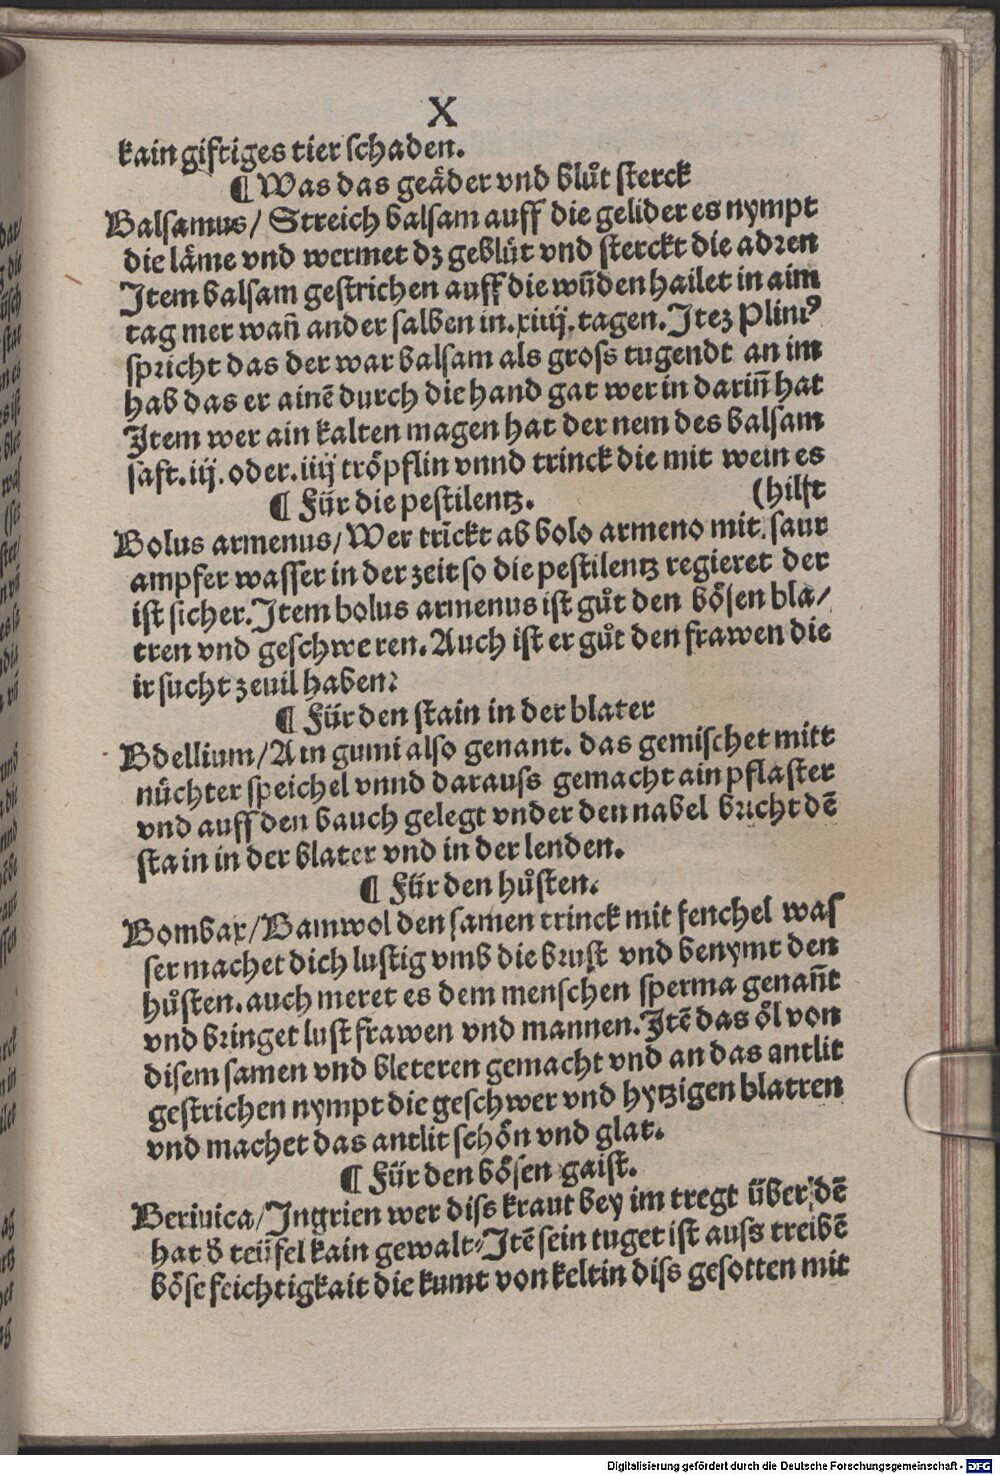 X
kain giftiges tier schaden.
¶ Was das geäder vnd blůt sterck
Balsamus/ Streich balsam auff die gelider es nympt
die läme vnd wermet dz geblüt vnd sterckt die adren
Item balsam gestrichen auff die wūden hailet in aim
tag mer wañ ander salben in.xiiij.tagen.Itez Plini⁹
spricht das der war balsam als gross tugendt an im
hab das er ainē durch die hand gat wer in dariñ hat
Item wer ain kalten magen hat der nem des balsam
saft.iij.oder.iiij tröpflin vnnd trinck die mit wein es
¶ Für die pestilentz. (hilft
Bolus armenus/Wer trīckt ab bolo armeno mit saur
ampfer wasser in der zeit so die pestilentz regieret der
ist sicher.Item bolus armenus ist gůt den bösen bla/
tren vnd geschweren.Auch ist er gůt den frawen die
ir sucht zeuil haben:
¶ Für den stain in der blater
Bdellium/Ain gumi also genant. das gemischet mitt
nüchter speichel vnnd darauss gemacht ain pflaster
vnd auff den bauch gelegt vnder den nabel bricht dē
stain in der blater vnd in der lenden.
¶ Für den hůsten.
Bombax/Bamwol den samen trinck mit fenchel was
ser machet dich lustig vmb die brust vnd benymt den
hůsten.auch meret es dem menschen sperma genañt
vnd bringet lust frawen vnd mannen.Itē das öl von
disem samen vnd bleteren gemacht vnd an das antlit
gestrichen nympt die geschwer vnd hytzigen blatren
vnd machet das antlit schön vnd glat.
¶ Für den bösen gaist.
Beruica/Ingrien wer diss kraut bey im tregt über dē
hat d̕ teüfel kain gewalt.Itē sein tuget ist auss treibē
böse feichtigkait die kumt von keltin diss gesotten mit
Digitalisierung gefördert durch die Deutsche Forschungsgemeinschaft - DFG